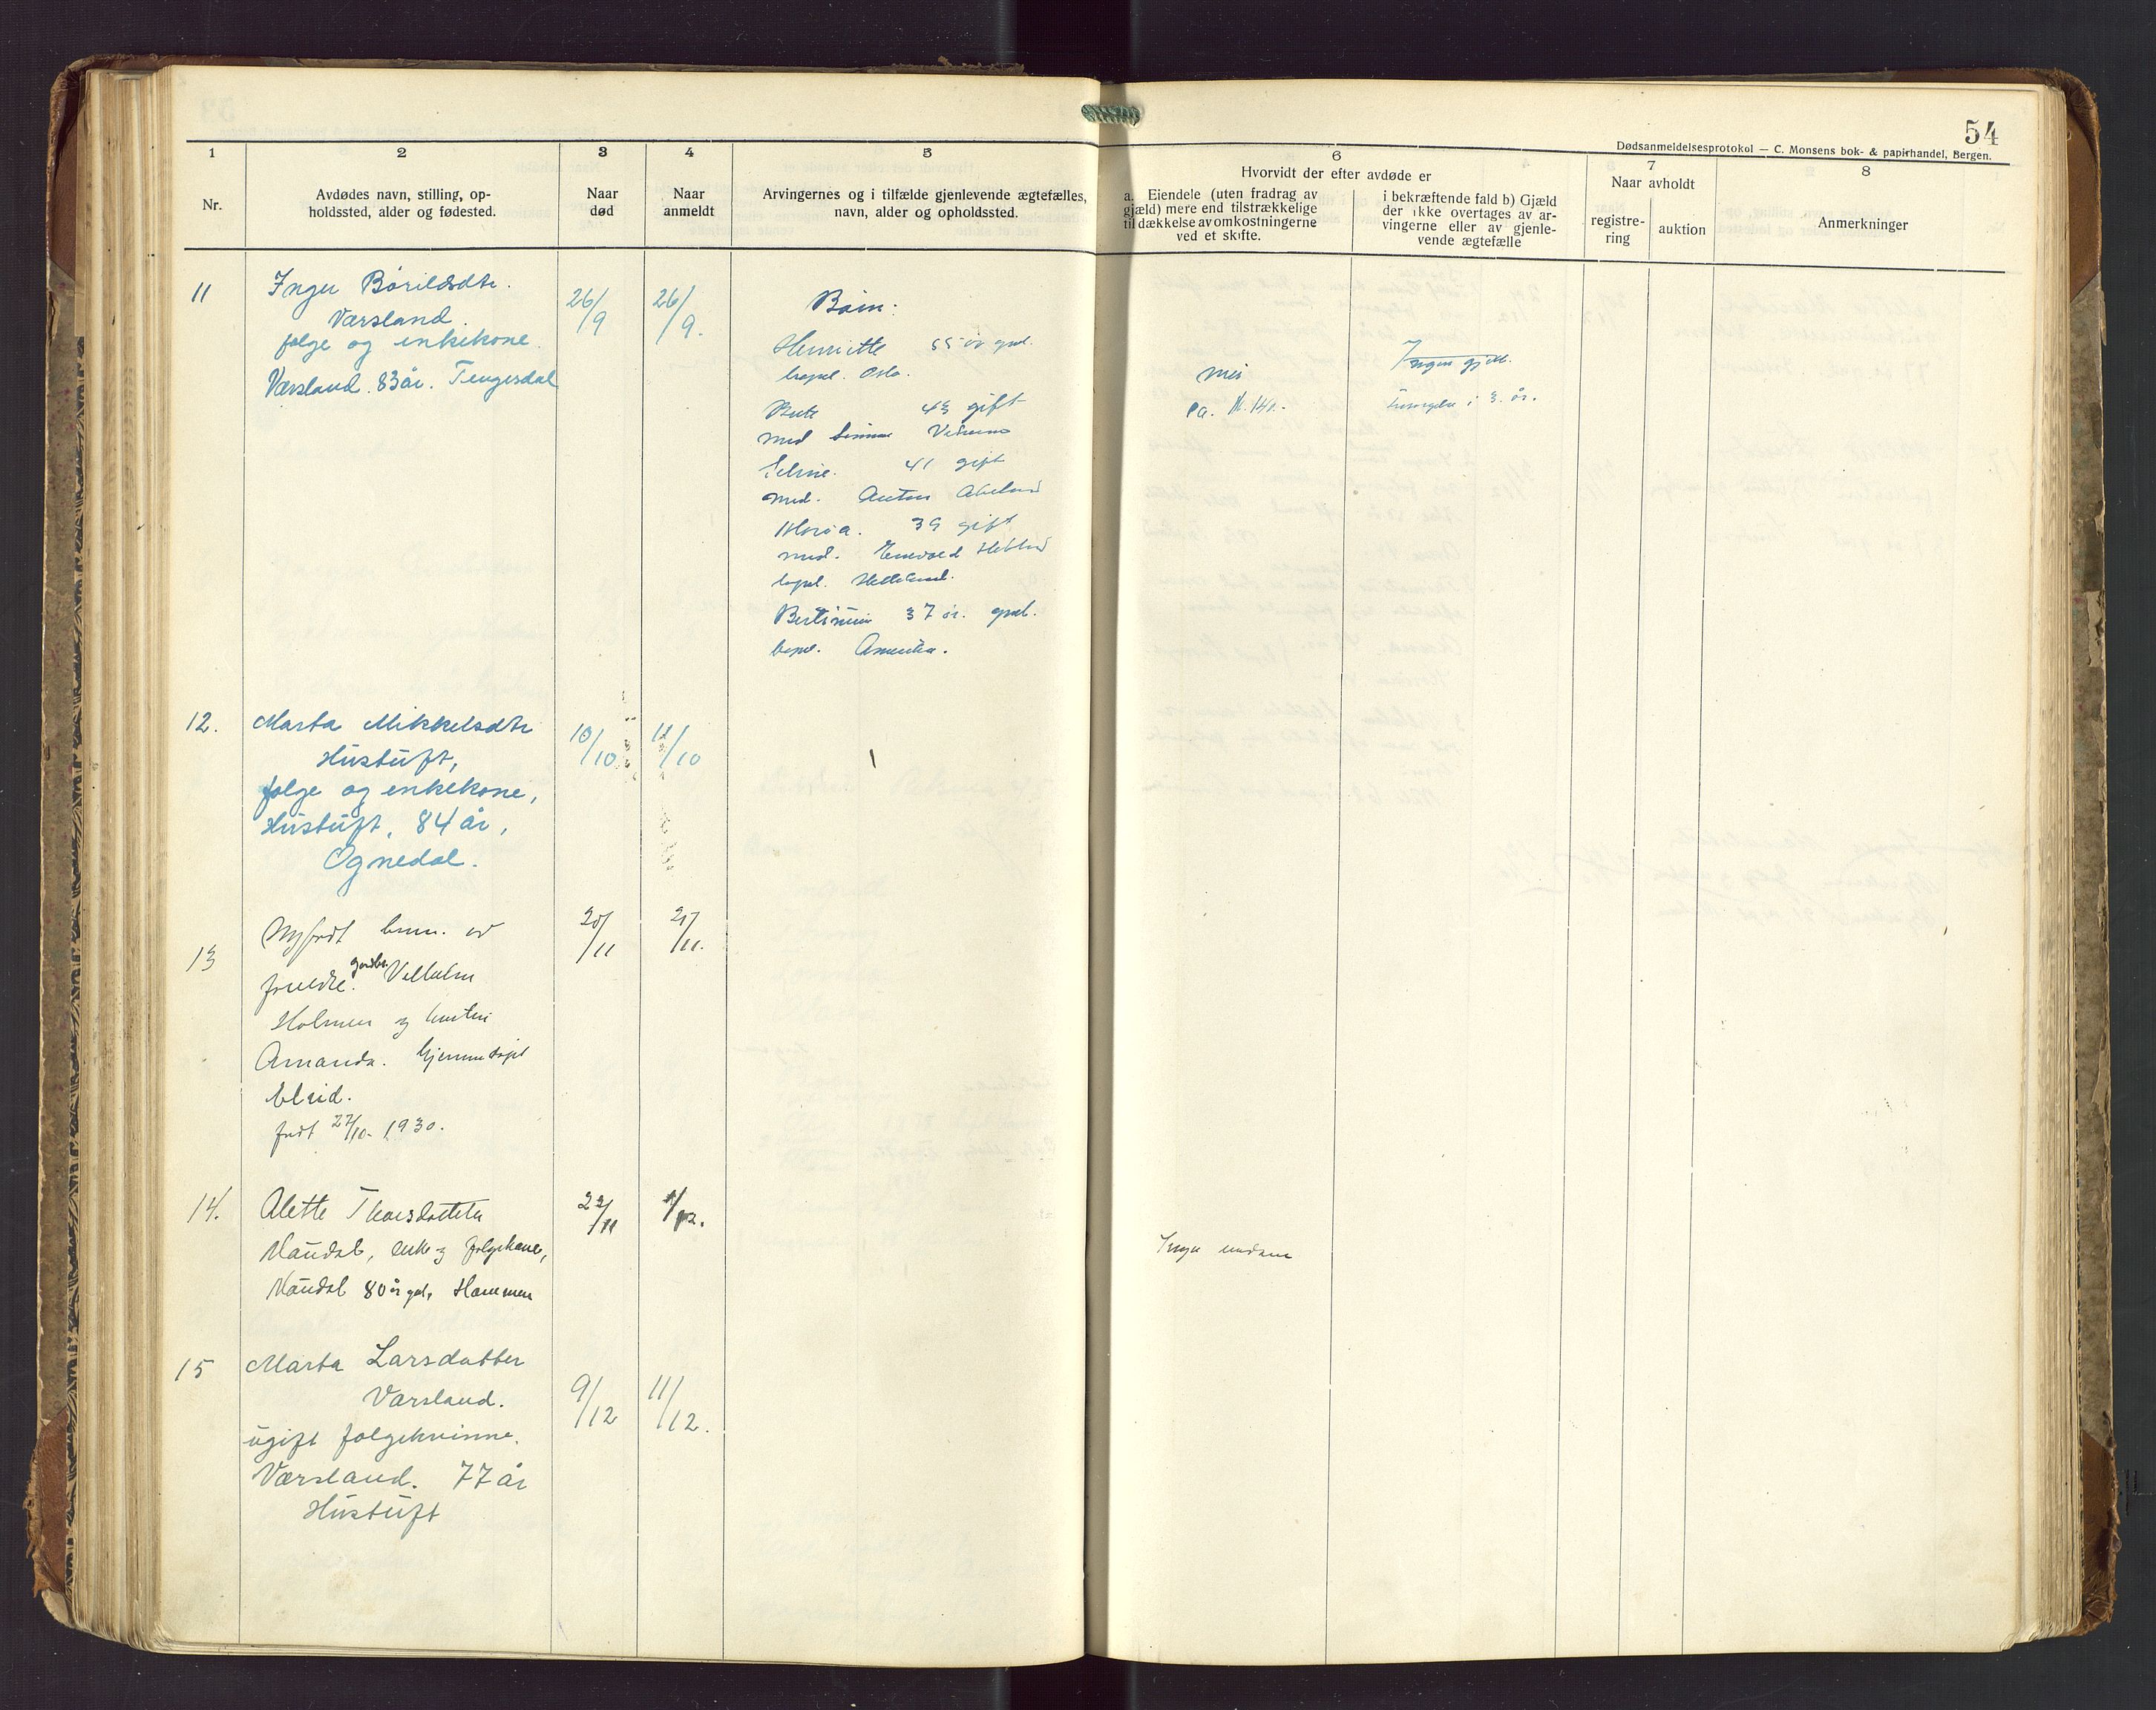 54
Dødsanmeldelsesprotokol — C. Monsens bok- & papirhandel, Bergen.
1
Nr.
2
Avdødes navn, stilling, op-
holdssted, alder og fødested.
3
Naar
død
4
Naar
anmeldt
5
Arvingernes og i tilfælde gjenlevende ægtefælles,
navn, alder og opholdssted.
6
Hvorvidt der efter avdøde er
a. Eiendele (uten fradrag av
gjæld) mere end tilstrækkelige
til dækkelse av omkostningerne
ved et skifte.
i bekræftende fald b) Gjæld
der ikke overtages av ar-
vingerne eller av gjenle-
vende ægtefælle
7
Naar avholdt
registre-
ring
auktion
8
Anmerkninger
11
Inger Bårildsdtr.
Værsland.
følge og enkekone
Værsland. 83 år. Tengesdal
26/9
26/9.
Børn:
Henriette 55 år gml.
bopel. Oslo.
43 gift
med
41 gift
med. Anton
39 gift
med.
bopel. Helleland.
37 år. gml.
bopel. Amerika.
Ingen gjæld.
i 3. år.
12.
Marta Mikkelsdtr
Hustuft,
følge og enkekone,
Hustuft, 84 år,
Ognedal.
10/10
11/10
13
Nyfødt barn. av
gårdbr. Vilhelm
Holmen og hustru
Amanda. hjemmedøpt
født 27/10. 1930.
20/11
21/11.
14.
Alette Thorsdatter
Maudal, enke og følgekone,
Maudal 80 år gml, Hammen
22/11
1/12.
Ingen
15
Marta Larsdatter
Værsland.
ugift følgekvinne.
Værsland. 77 år
Hustuft
9/12
11/12.